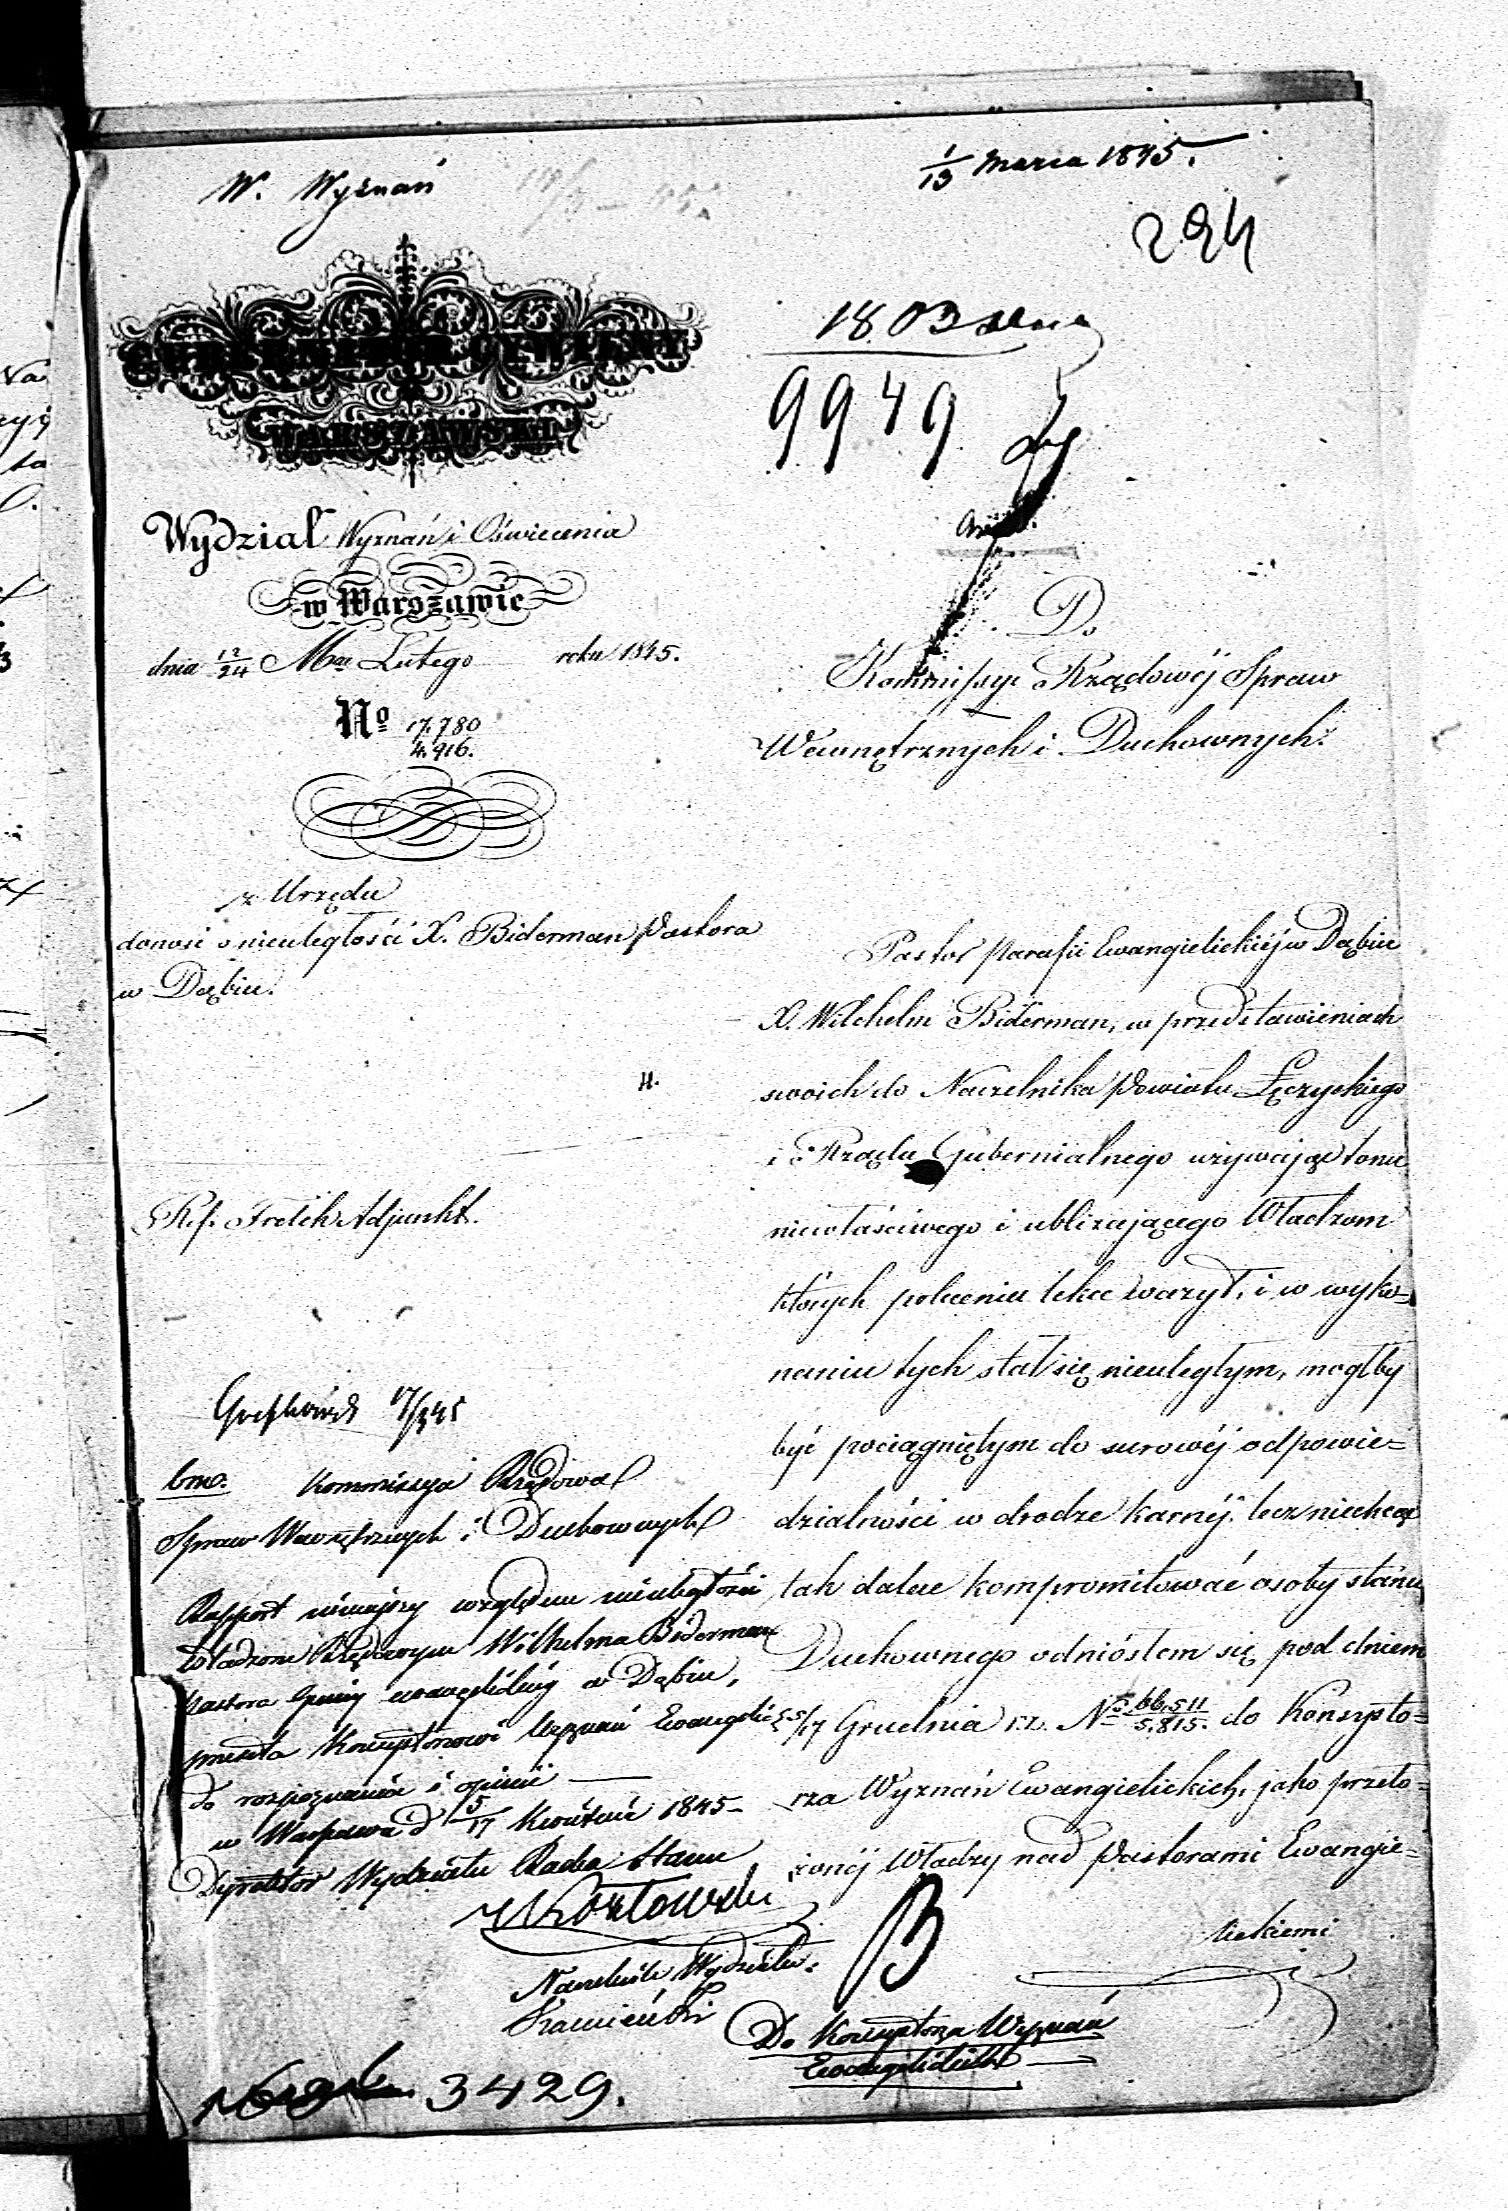 W. Wyznań
1/13 Marca 1845.
294
1803
9949
GUBERNATOR CYWILNY
WARSZAWSKI
Wydział Wyznań i Oświecenia
w Warszawie
dnia 12/24 Mca Lutego roku 1845.
No 17.780
4.916.
z Urzędu
donosi o nieuległości X. Biderman Pastora
w Dąbiu.
Ref. Fretih Adjunkt.
Do
Kommissyi Rządowéj Spraw
Wewnętrznych i Duchownych.
Pastor parafii Ewangielickiéj w Dąbiu
X. Wilchelm Biderman, w przedstawieniach
swoich do Naczelnika Powiatu Łęczyckiego
i Rządu Gubernialnego używając tonu
niewłaściwego i ubliżającego Władzom
których poleceniu lekce ważył, i w wyko=
naniu tych stał się nieuległym, mógłby
być pociągniętym do surowéj odpowie=
dzialności w drodze karnéj. lecz niechcąc
tak dalece kompromitować osoby stanu
Duchownego odniósłem się pod dniem
5/17 Grudnia r.z. No 66.511/5.815. do Konsysto=
rza Wyznań Ewangielickich, jako przeło=
żonéj Władzy nad Pastorami Ewangie=
lickiemi
17/3 45
bmo. Kommissya Rządowa
Spraw Wewnętrznych i Duchownych
Rapport niniejszy względem nieuległości
Władzom Rządowym Wilhelma Biderman
Pastora Gminy ewangelickiéj w Dąbiu,
przesyła Konsystorzowi Wyznań Ewangelic:
do rozpoznania i opinii —
w Warszawie d 5/17 Kwietnia 1845 -
Dyrektor Wydziału Radca Stanu
Kozłowski
Naczelnik Wydziału.
Kamieński
B
Do Konsystorza Wyznań
Ewangelickich
3429.